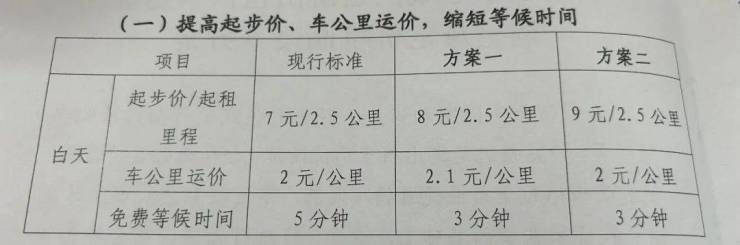 （一）提高起步价、车公里运价，缩短等候时间
项目 现行标准 方案一 方案二
白天
起步价/起租
里程
7 元/2.5 公里 8 元/2.5 公里 9 元/2.5 公里
车公里运价 2 元/公里 2.1 元/公里 2 元/公里
免费等候时间 5 分钟 3 分钟 3 分钟